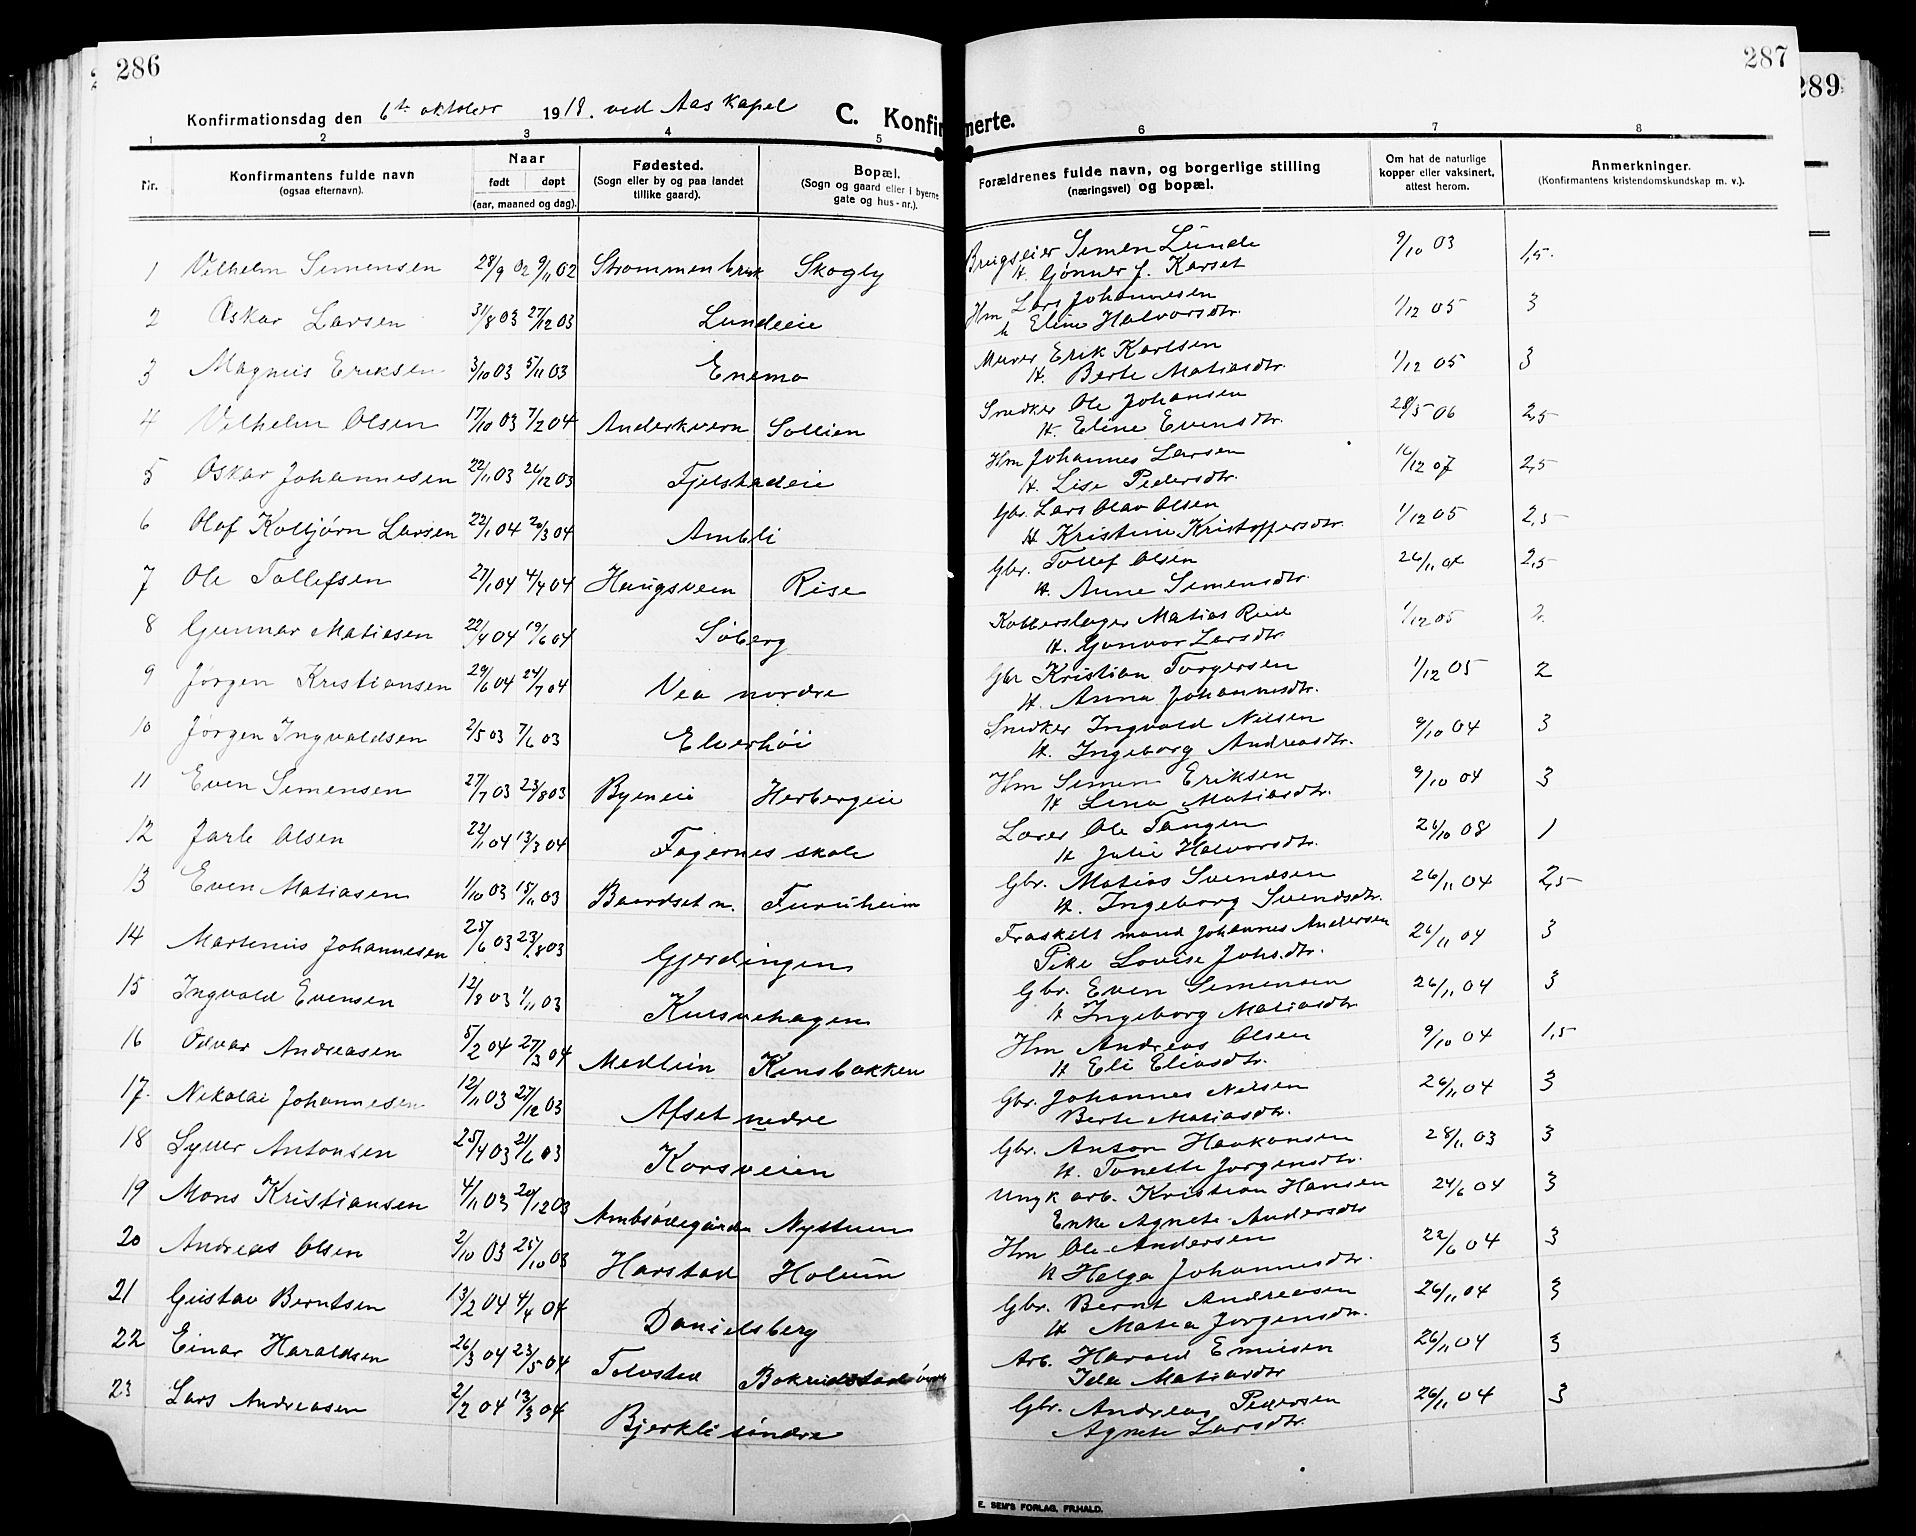 286
287
289
Konfirmationsdag den 6te oktober 1918. ved Aas kapel
C. Konfirmerte.
1 2 3 4 5 6 7 8
Nr.
Konfirmantens fulde navn
(ogsaa efternavn).
Naar
født døpt
(aar, maaned og dag).
Fødested.
(Sogn eller by og paa landet
tillike gaard).
Bopæl.
(Sogn og gaard eller i byerne
gate og hus-nr.).
Forældrenes fulde navn, og borgerlige stilling
(næringsvei) og bopæl.
Om hat de naturlige
kopper eller vaksinert,
attest herom.
Anmerkninger.
(Konfirmantens kristendomskundskap m. v.).
1 Vilhelm Simensen 28/9 02 9/11 02 Strømmenbruk Skogly Brugseier Simen Lunde 9/10 03 1,5
H. Gønner J. Karset
2 Oskar Larsen 31/8 03 27/12 03 Lundeeie Hm Lars Johannesen 1/12 05 3
h Eline Halvorsdtr.
3 Magnus Eriksen 3/10 03 5/11 03 Enemo Murer Erik Karlsen 1/12 05 3
H. Berte Matiasdtr.
4 Vilhelm Olsen 17/10 03 7/2 04 Anderkvern Sollien Snedker Ole Johansen 28/5 06 2,5
H. Eline Evensdtr.
5 Oskar Johannesen 22/11 03 26/12 03 Fjelstadeie Hm Johannes Larsen 16/12 07 2,5
H. Lise Pedersdtr.
6 Olaf Kolbjørn Larsen 22/1 04 20/3 04 Ambli Gbr. Lars Olav Olsen 1/12 05 2,5
H Kristine Kristoffersdtr.
7 Ole Tollefsen 27/1 04 4/4 04 Haugsveen Rise Gbr. Tollef Olsen 26/11 04 2,5
H. Anne Simensdtr.
8 Gunnar Matiasen 22/4 04 19/6 04 Søberg Kobberslager Matias Rud 1/12 05 2.
H. Gunvor Larsdtr.
9 Jørgen Kristiansen 29/6 04 24/7 04 Vea nordre Gbr Kristian Torgersen 1/12 05 2
H. Anna Johannesdtr.
10 Jørgen Ingvaldsen 2/5 03 7/6 03 Elverhøi Snedker Ingvald Nilsen 9/10 04 3
H. Ingeborg Andreasdtr.
11 Even Simensen 27/7 03 23/8 03 Byeneie Herbergeie Hm Simen Eriksen 9/10 04 3
H Lina Matiasdtr.
12 Jarle Olsen 22/1 04 13/3 04 Fagernes skole Lærer Ole Tangen 26/10 08 1
H Julie Halvorsdtr.
13 Even Matiasen 1/10 03 15/11 03 Baardset n. Furuheim Gbr. Matias Svendsen 26/11 04 2,5
H. Ingeborg Svendsdtr.
14 Martinius Johannesen 25/6 03 23/8 03 Gjerdingen Fraskilt mand Johannes Andersen 26/11 04 3
Pike Lovise Johsdtr.
15 Ingvald Evensen 12/8 03 1/11 03 Kusvehagen Gbr. Even Simensen 26/11 04 3
H Ingeborg Matiasdtr
16 Odvar Andreasen 5/2 04 27/3 04 Medlien Kinsbakken Hm Andreas Olsen 9/10 04 1,5
H Eli Eliasdtr.
17. Nikolai Johannesen 12/11 03 27/12 03 Afset nedre Gbr. Johannes Nilsen 26/11 04 3
Berte Matiasdtr.
18 Syver Antonsen 25/4 03 21/6 03 Korsveien Gbr. Anton Haakonsen 28/11 03 3
H. Tonette Jørgensdtr.
19 Mons Kristiansen 4/11 03 20/12 03 Nystuen Ungk arb. Kristian Hansen 24/6 04 3
Enke Agnete Andersdtr
20 Andreas Olsen 2/10 03 25/10 03 Harstad Holum Hm Ole Andersen 22/6 04 3
H Helga Johannesdtr.
21 Gustav Berntsen 13/2 04 4/4 04 Danielsberg Gbr. Bernt Andreasen 26/11 04 3
H Matea Jørgensdtr.
22 Einar Haraldsen 26/3 04 23/5 04 Tolvstad Arb. Harald Emilsen 26/11 04 3
Ida Matiasdtr
23 Lars Andreasen 2/2 04 13/3 04 Bjerkli søndre Gbr. Andreas Pedersen 26/11 04 3
Agnete Larsdtr.
E. SEM'S FORLAG, FR.HALD.